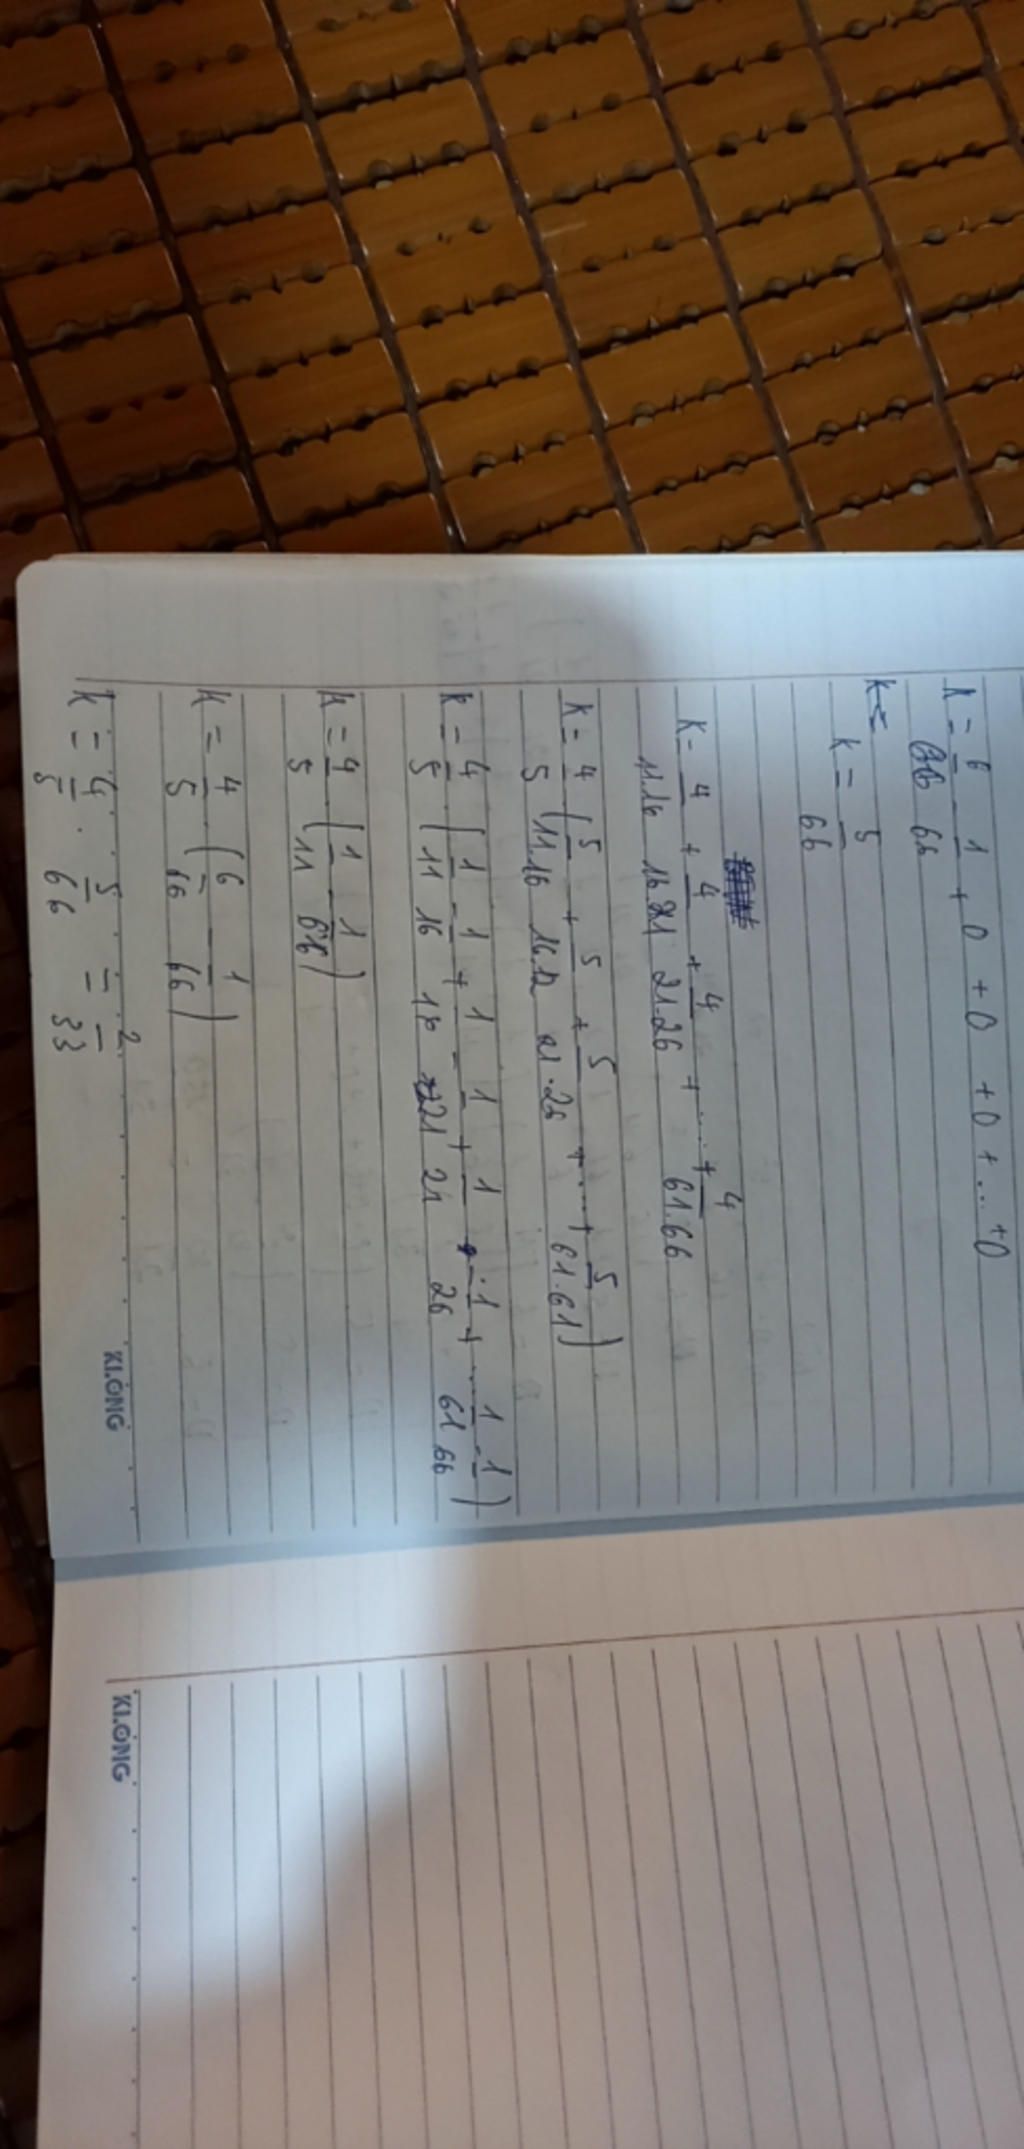 K = 6/66 - 1/66 + 0 + 0 + 0 + ... + 0
K =
K = 5/66
K = 4/11.16 + 4/16.21 + 4/21.26 + .... + 4/61.66
K = 4/5 (5/11.16 + 5/16. + 5/21.26 + .... + 5/61.61)
K = 4/5 (1/11 - 1/16 + 1/16 - 1/21 + 1/21 - 1/26 + ... 1/61 - 1/66)
K = 4/5 . (1/11 - 1/66)
K = 4/5 . (6/66 - 1/66)
K = 4/5 . 5/66 = 2/33
KLONG
KLONG